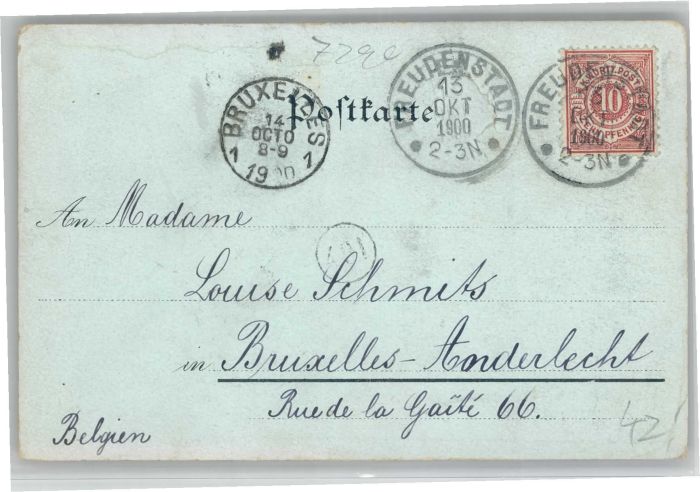 7290
Postkarte
BRUXELLES
14
OCTO
8-9
1 1
1900
FREUDENSTADT
13
OKT
1900
2-3N
FREUDE
10
PFENNIG
1900
2-3N
An Madame
Louise Schmits
in Bruxelles-Anderlecht
Rue de la Gaîté 66.
Belgien
42